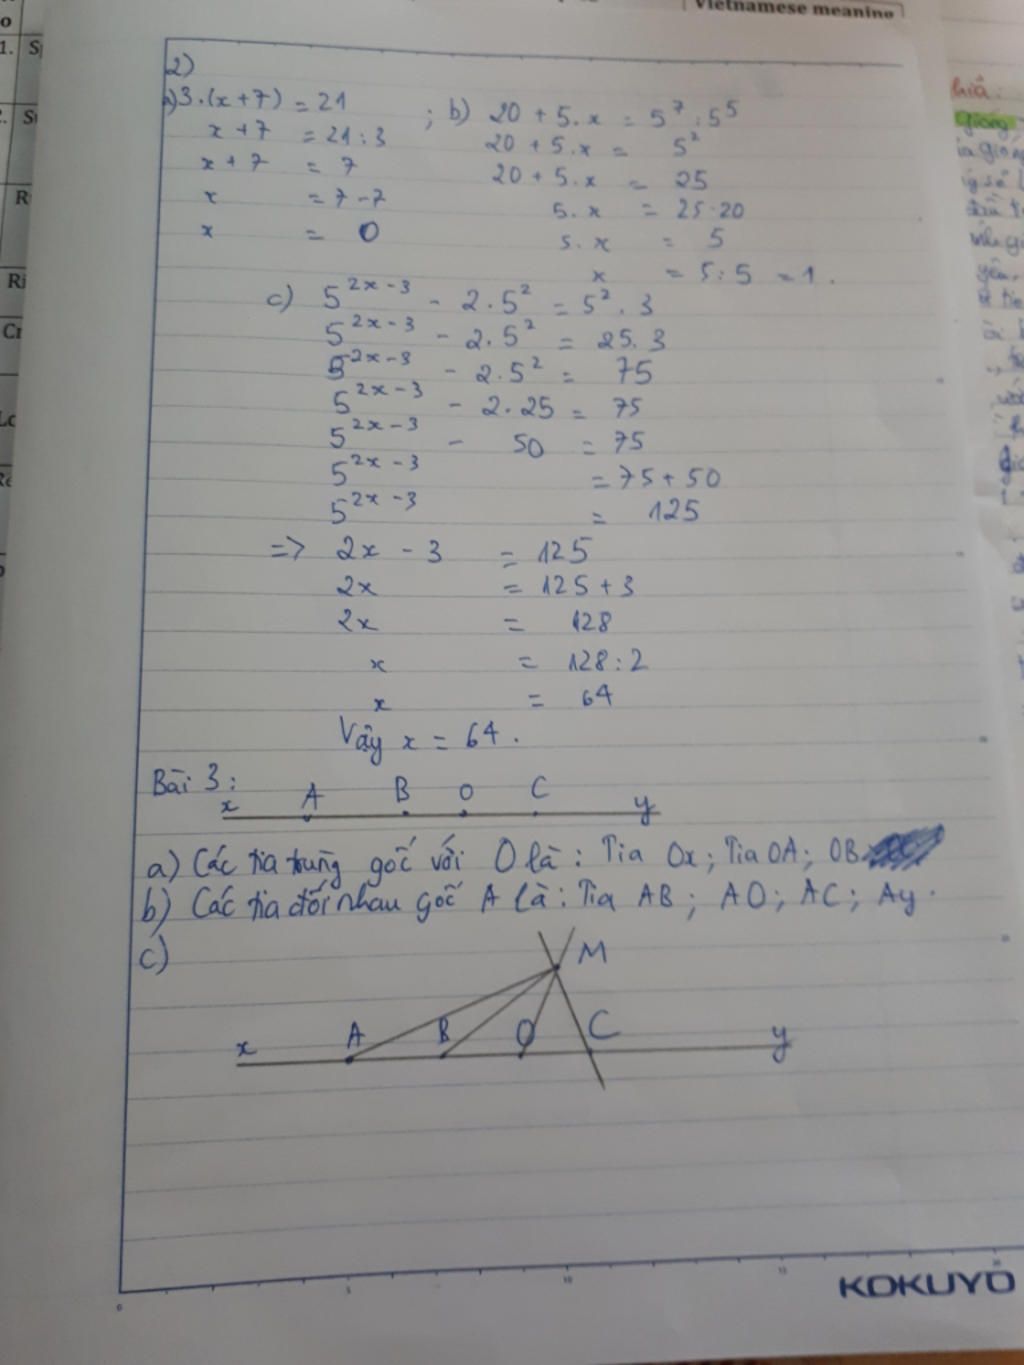 Vietnamese meaning
2)
a) 3.(x+7) = 21
x+7 = 21:3
x+7 = 7
x = 7-7
x = 0
; b) 20 + 5.x = 5⁷:5⁵
20 + 5.x = 5²
20 + 5.x = 25
5.x = 25-20
5.x = 5
x = 5:5 = 1.
c) 5²ˣ⁻³ - 2.5² = 5².3
5²ˣ⁻³ - 2.5² = 25.3
5²ˣ⁻³ - 2.5² = 75
5²ˣ⁻³ - 2.25 = 75
5²ˣ⁻³ - 50 = 75
5²ˣ⁻³ = 75+50
5²ˣ⁻³ = 125
=> 2x - 3 = 125
2x = 125+3
2x = 128
x = 128:2
x = 64
Vậy x = 64.
Bài 3:
x A B O C y
a) Các tia trùng gốc với O là: Tia Ox; Tia OA; OB
b) Các tia đối nhau gốc A là: Tia AB; AO; AC; Ay.
c)
M
x A B O C y
KOKUYO